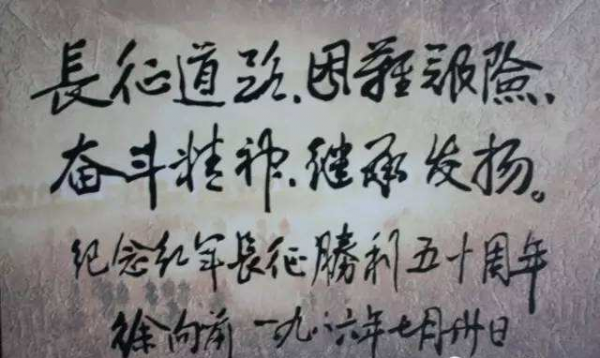 長征道路、困難艰險、
奋斗精神、继承发扬。
纪念红军長征勝利五十周年
徐向前 一九八六年七月卅日